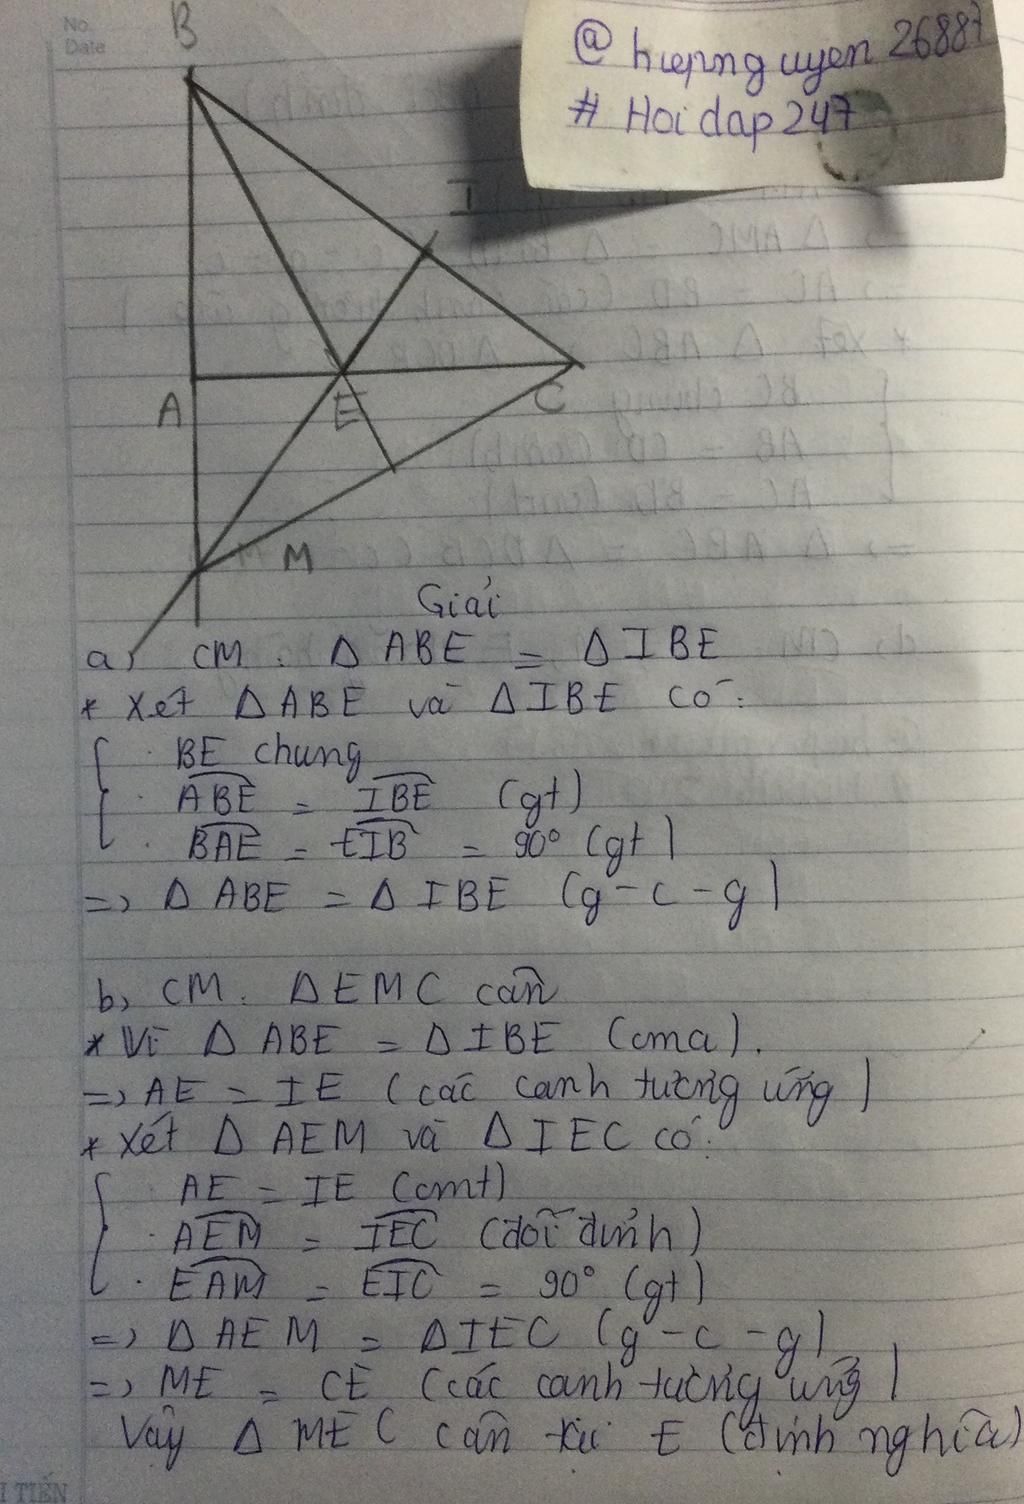 No.
Date
@ hiepnguyen 26887
# Hoidap247
B
I
A
E
C
M
Giải
a, CM. Δ ABE = Δ IBE
* Xét Δ ABE và Δ IBE có:
· BE chung
· ABE = IBE (gt)
· BAE = EIB = 90° (gt)
=> Δ ABE = Δ IBE (g-c-g)
b, CM. Δ EMC cân
* Vì Δ ABE = Δ IBE (cma).
=> AE = IE (các cạnh tương ứng)
* Xét Δ AEM và Δ IEC có:
AE = IE (cmt)
· AEM = IEC (đối đỉnh)
· EAM = EIC = 90° (gt)
=> Δ AEM = Δ IEC (g-c-g)
=> ME = CE (các cạnh tương ứng)
Vậy Δ MEC cân tại E (định nghĩa)
I TIẾN